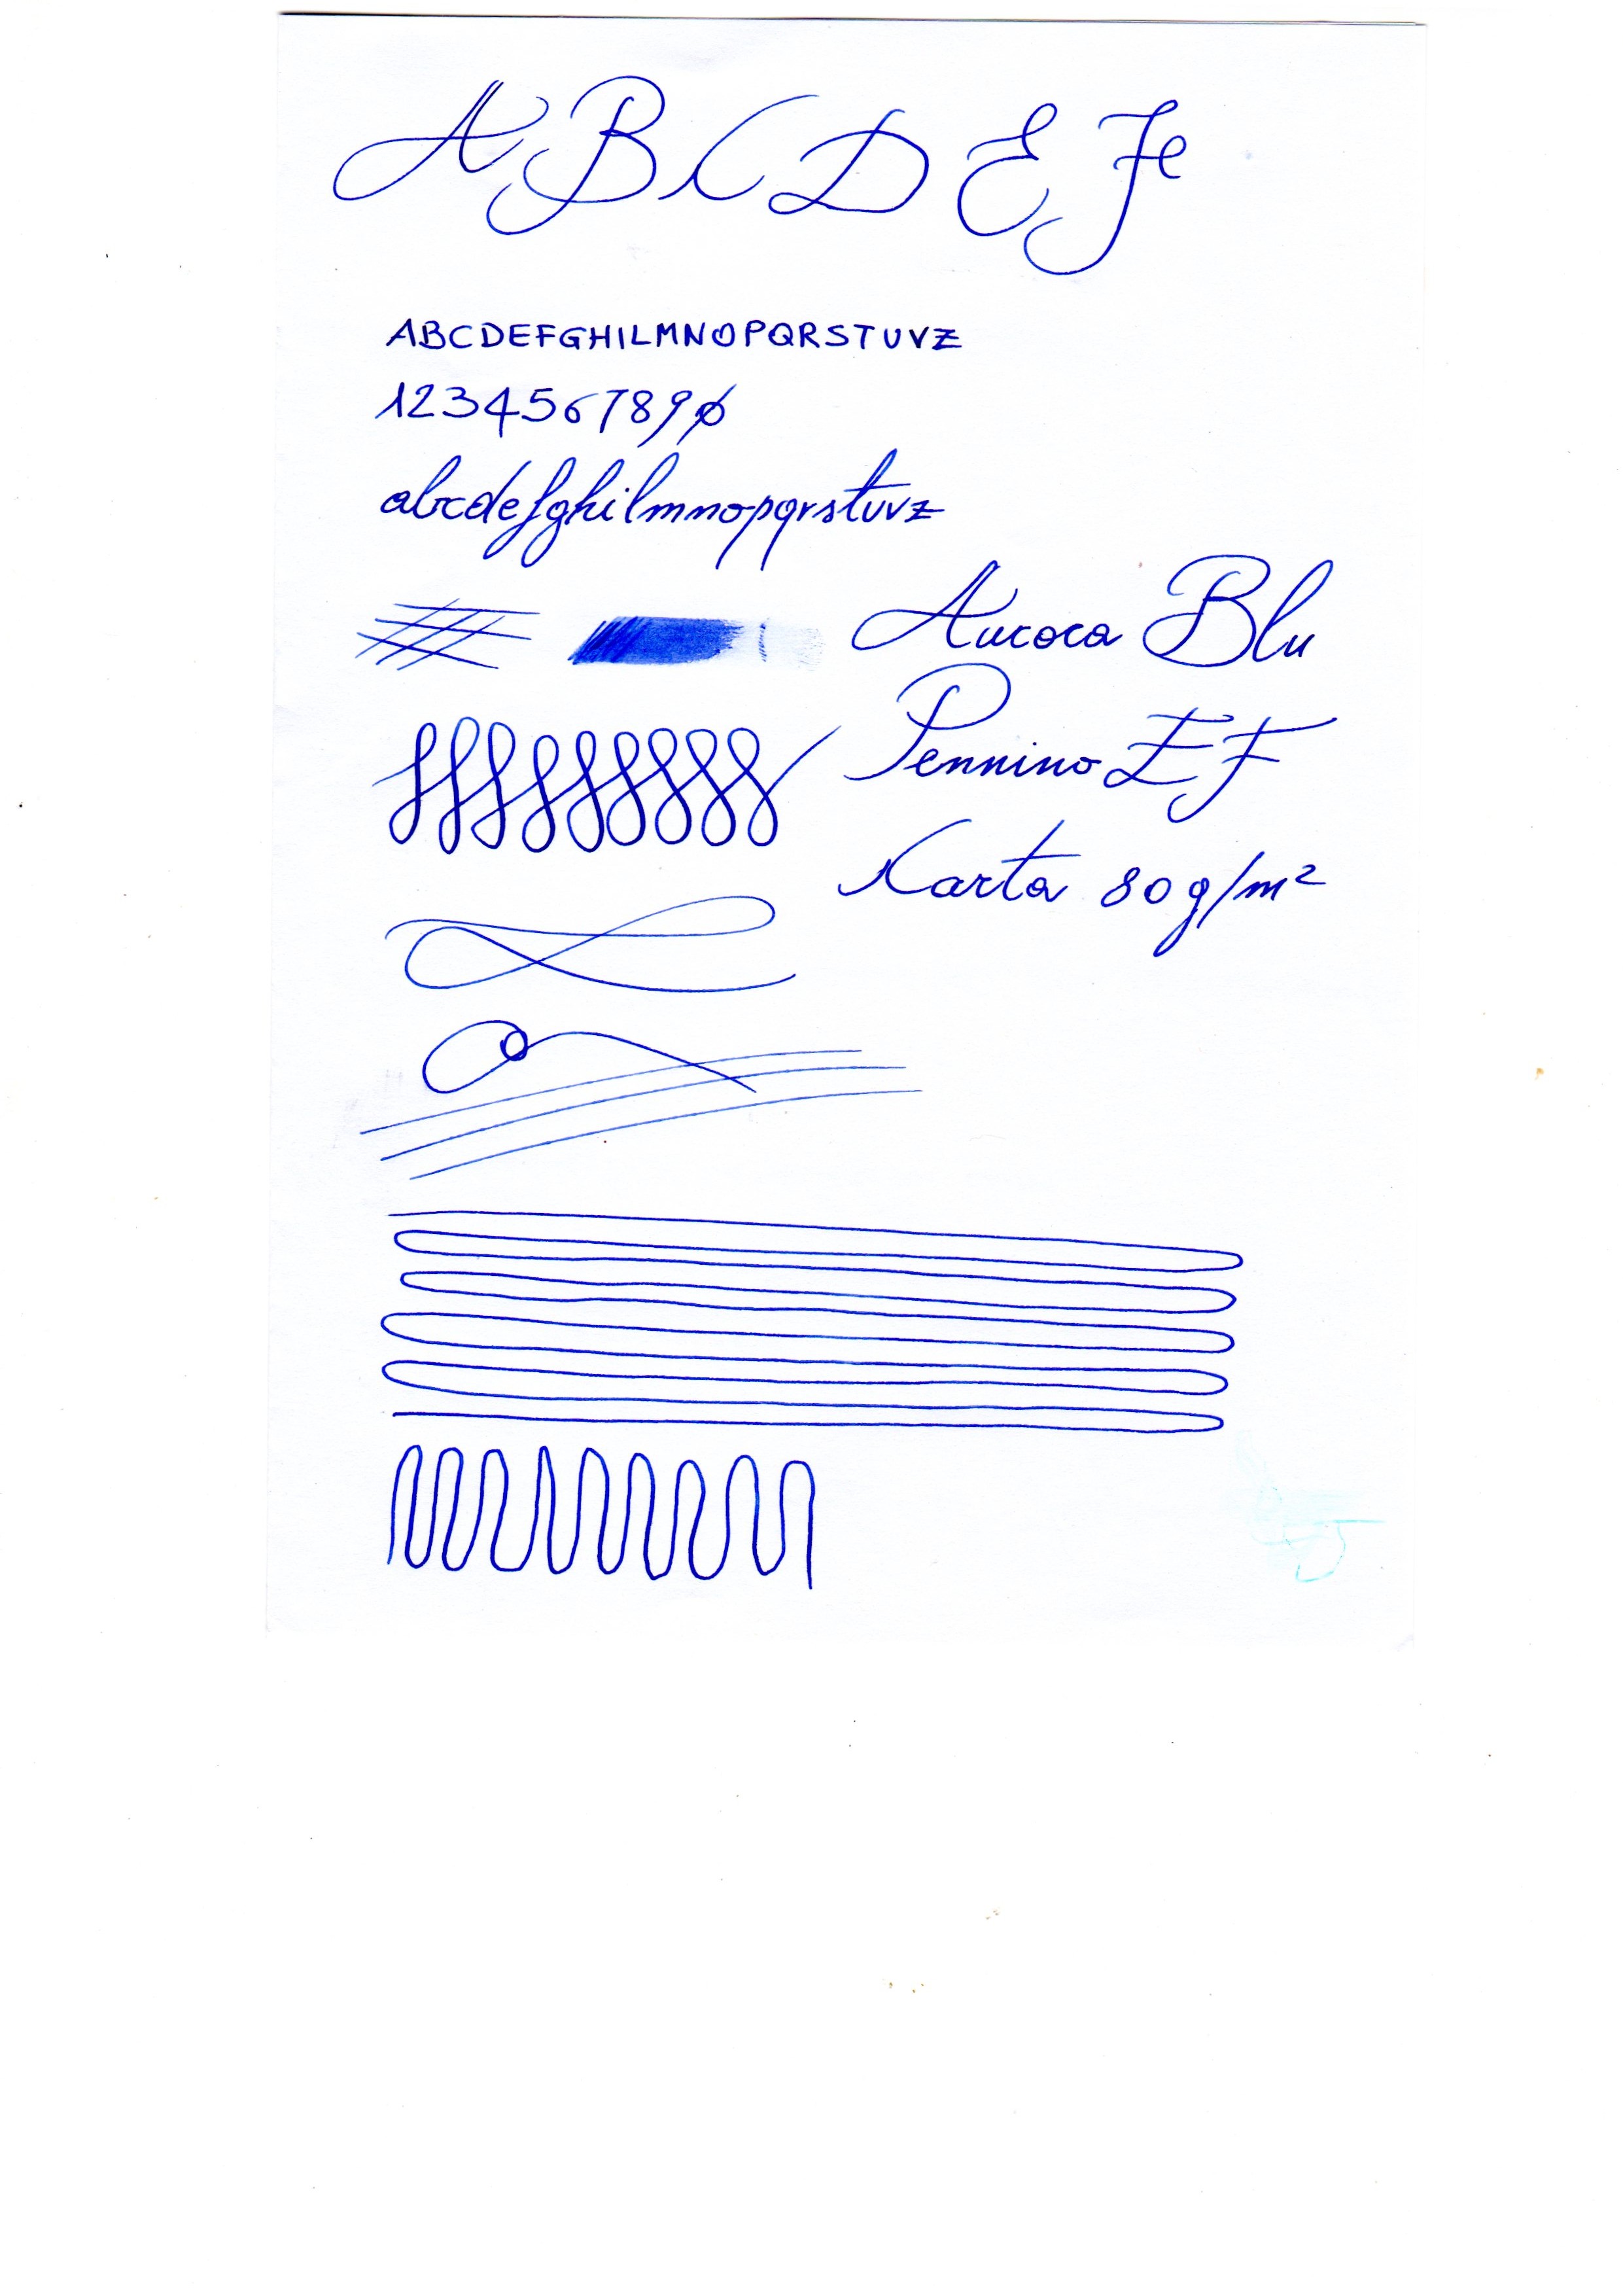 A B C D E F
ABCDEFGHILMNOPQRSTUVZ
1234567890
abcdefghilmnopqrstuvz
Aurora Blu
Pennino EF
Carta 80g/m²